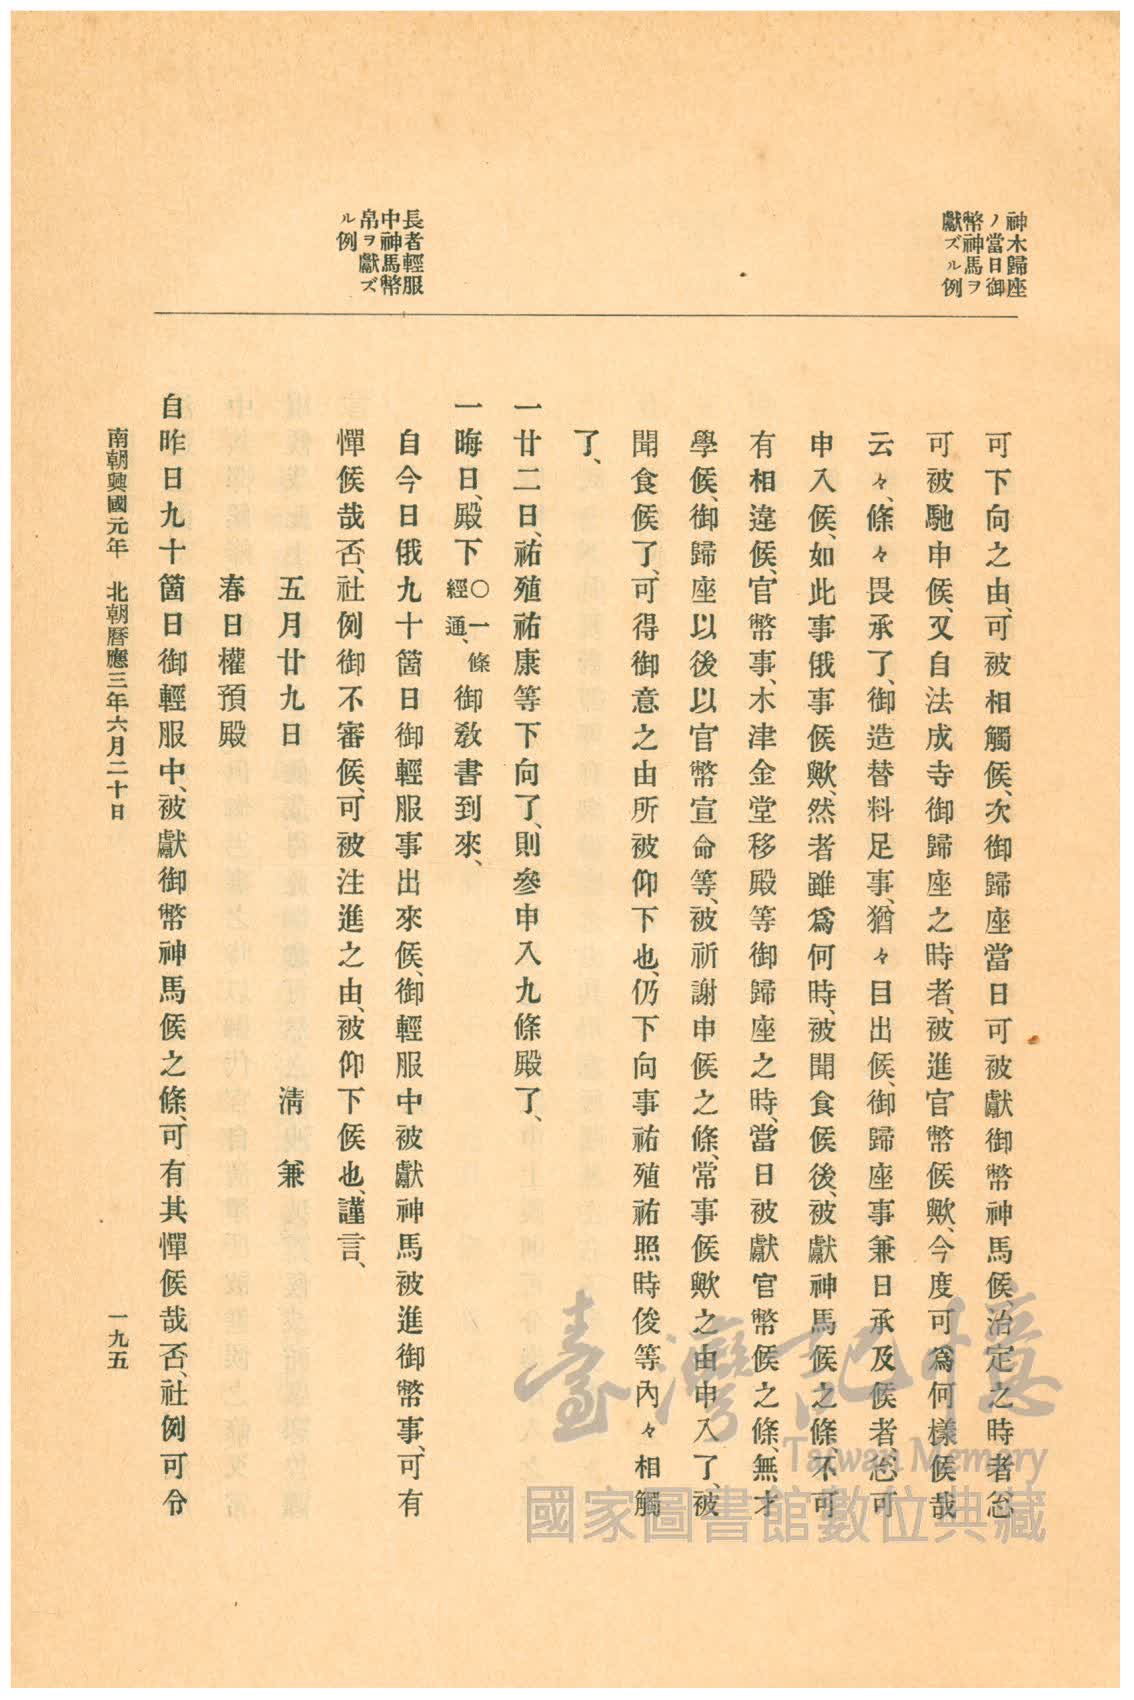 神木歸座
ノ當日御
幣神馬ヲ
獻ズル例
長者輕服
中神馬幣
帛ヲ獻ズ
ル例
可下向之由、可被相觸候、次御歸座當日可被獻御幣神馬候、治定之時者、忩
可被馳申候、又自法成寺御歸座之時者、被進官幣候歟、今度可爲何樣候哉
云々、條々畏承了、御造替料足事、猶々目出候、御歸座事兼日承及候者、忩可
申入候、如此事俄事候歟、然者雖爲何時、被聞食候後、被獻神馬候之條、不可
有相違候、官幣事、木津金堂移殿等御歸座之時、當日被獻官幣候之條、無才
學候、御歸座以後以官幣宣命等、被祈謝申候之條、常事候歟之由申入了、被
聞食候了、可得御意之由所被仰下也、仍下向事祐殖祐照時俊等內々相觸
了、
一廿二日、祐殖祐康等下向了、則參申入九條殿了、
一晦日、殿下〇一條經通、御敎書到來、
自今日俄九十箇日御輕服事出來候、御輕服中被獻神馬被進御幣事、可有
憚候哉否、社例御不審候、可被注進之由、被仰下候也、謹言、
五月廿九日 淸兼
春日權預殿
自昨日九十箇日御輕服中、被獻御幣神馬候之條、可有其憚候哉否、社例可令
南朝興國元年 北朝曆應三年六月二十日 一九五
臺灣記憶
Taiwan Memory
國家圖書館數位典藏